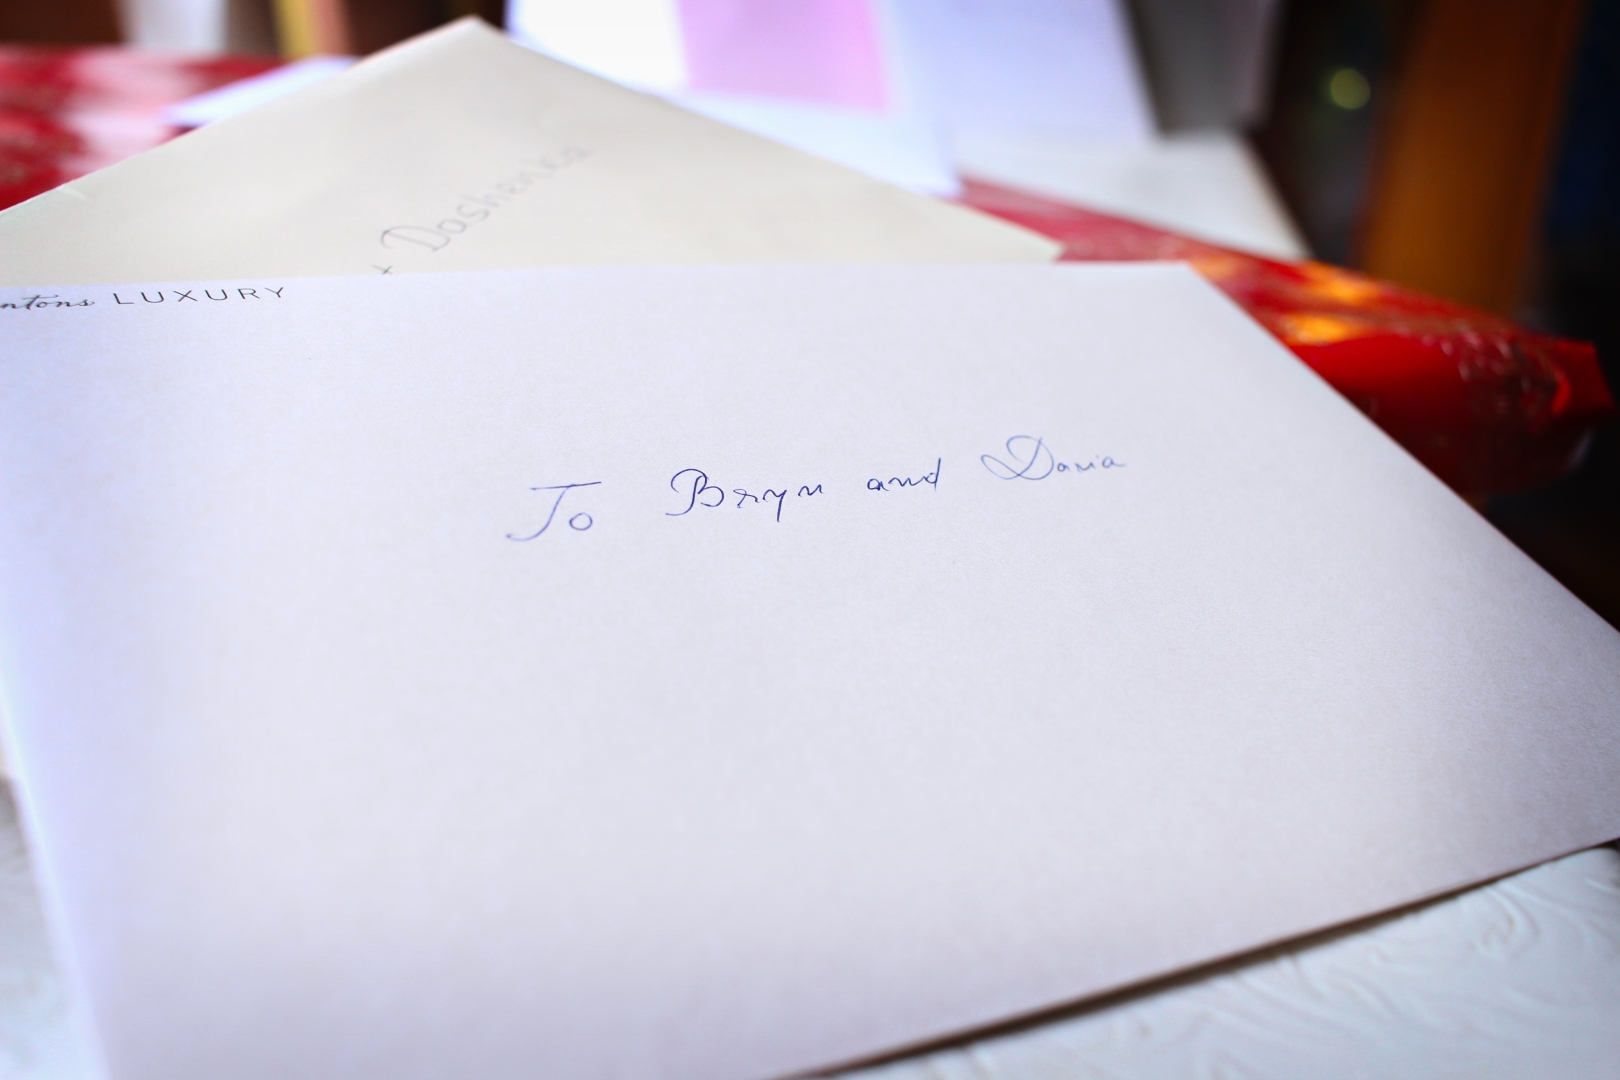 Dashenka
ntons LUXURY
To Bryn and Daria